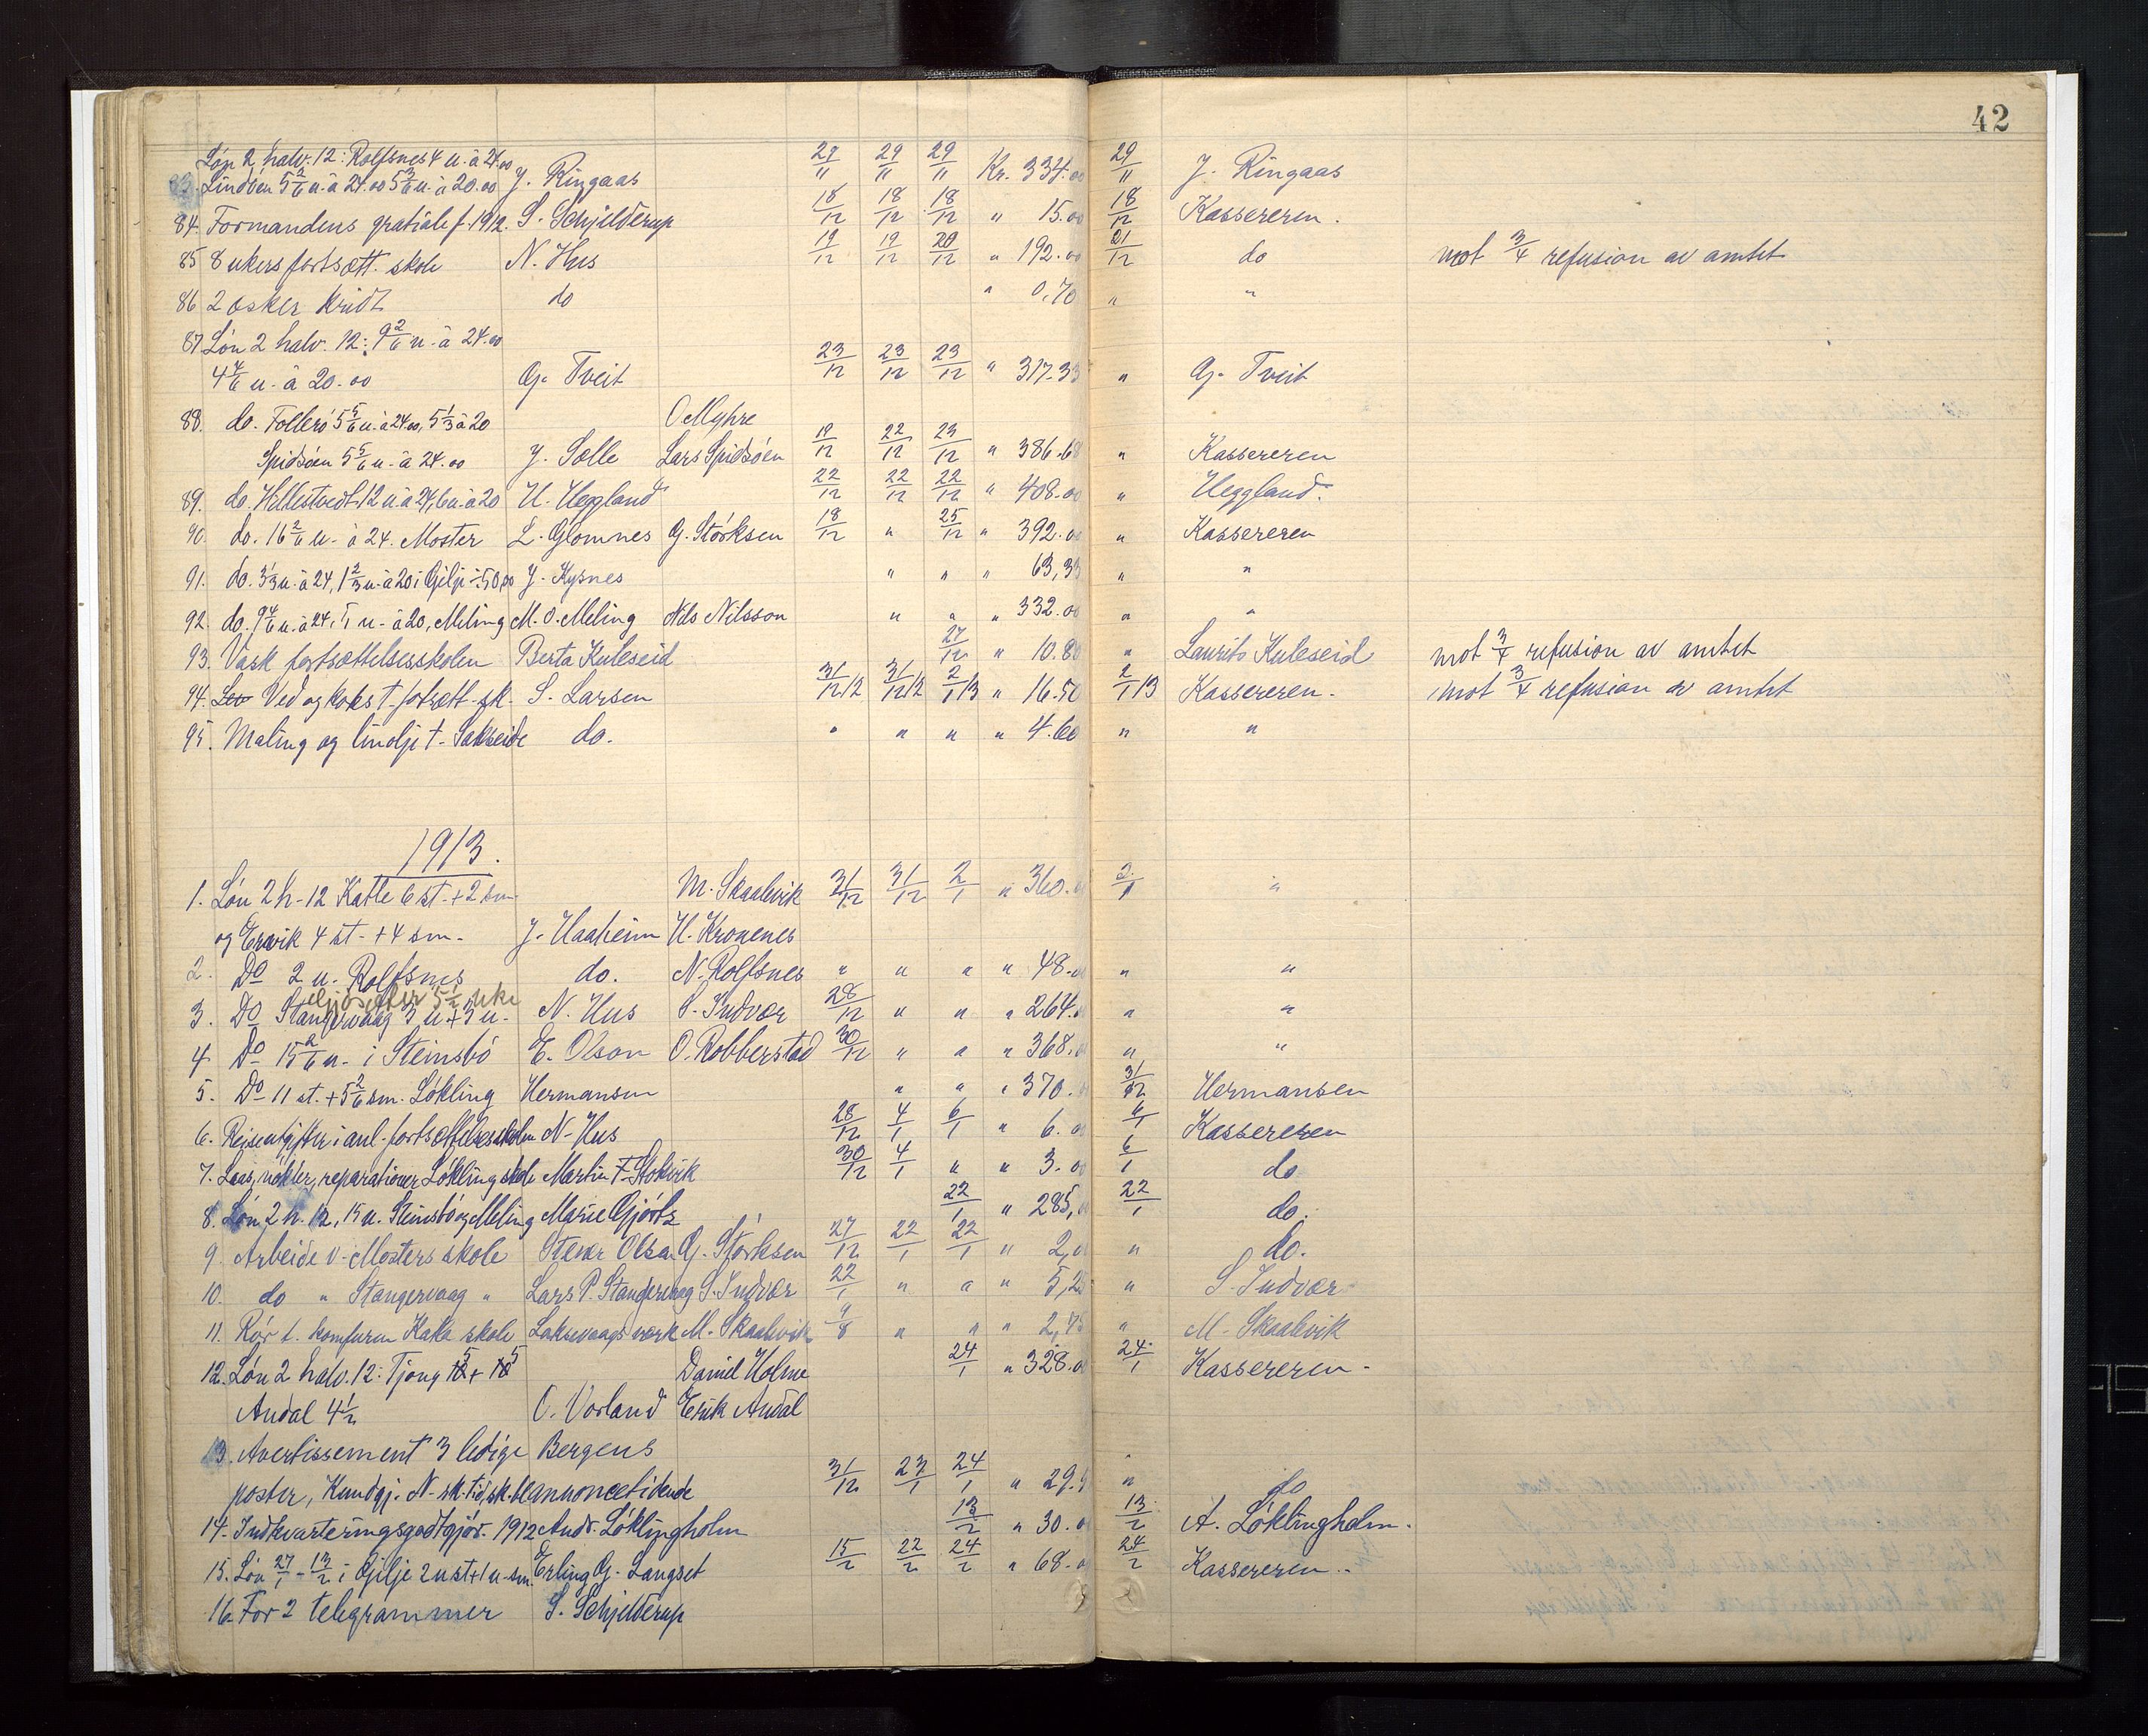 42
Løn 2 halv. 12: Rolfsnes 4 u. à 24.00
83. Lindøen 5 2/6 u. à 24.00 5 3/6 u. à 20.00 J. Ringaas 29/11 29/11 29/11 Kr. 334.00 29/11 J. Ringaas
84. Formandens gratiale f. 1912. S. Schjelderup 18/12 18/12 18/12 " 15.00 18/12 Kassereren.
85 8 ukers fortsætt. skole N. Hus 19/12 19/12 20/12 " 192.00 21/12 do mot 3/4 refusion av amtet
86 2 æsker kridt do " 0.70 " "
87. Løn 2 halv. 12: 9 2/6 u. à 24.00
4 4/6 u. à 20.00 G. Tveit 23/12 23/12 23/12 " 317.33 " G. Tveit
88. do. Follerø 5 5/6 u. à 24.00, 5 1/3 à 20 O Myhre
Spidsøen 5 5/6 u. à 24.00 J. Sælle Lars Spidsøen 19/12 22/12 23/12 " 386.68 " Kassereren
89. do. Hillestvedt 12 u. à 24, 6 u. à 20 H. Heggland 22/12 22/12 22/12 " 408.00 " Heggland.
90. do. 16 2/6 u. à 24. Moster L. Glomnes G. Størksen 18/12 " 25/12 " 392.00 " Kassereren
91. do. 3 1/3 u. à 24, 1 2/3 u. à 20 i Gilje ÷ 50,00 J. Kysnes " " " 63,33 " "
92. do. 9 4/6 u. à 24, 5 u. à 20, Meling M. O. Meling Nils Nilsson " " " 332.00 " "
93. Vask fortsættelsesskolen Berta Kuleseid 27/12 " 10.80 " Laurits Kuleseid mot 3/4 refusion av amtet
94. Ved og koks t. fotsætt. sk. S. Larsen 31/12 12 31/12 12 2/1 13 " 16.50 2/1 13 Kassereren. mot 3/4 refusion av amtet
95. Maling og linolje t. Sakseide do. " " " " 4.60 " "
1913.
1. Løn 2 h. 12 Katle 6 st. + 2 sm. M. Skaalevik 31/12 31/12 2/1 " 360.0 2/1 "
og Ervik 4 st. + 4 sm. J. Haaheim H. Kronenes
2. Do 2 u. Rolfsnes do. N. Rolfsnes " " " " 48.0 " "
5 1/2 uke
3. Do Stangervaag 3 u + 3 u. N. Hus S. Indvær 28/12 " " " 264.0 " "
4 Do 15 2/6 u. i Steinsbø E. Olson O. Robberstad 30/12 " " " 368.0 " "
5. Do 11 st. + 5 2/6 sm. Løkling Hermansen " " " 370. 31/12 Hermansen
6. Reiseutgifter i anl. fortsættelsesskolen N. Hus 28/12 4/1 6/1 " 6.00 6/1 Kassereren
7. Laas, nøkler, reparationer Løkling skole Martin T. Stokvik 30/12 4/1 " " 3.00 6/1 do
8. Løn 2 h. 12, 15 u. Steinsbø og Meling Marie Gjørtz 22/1 " 285,0 22/1 do.
9. Arbeide v. Mosters skole Steinar Olsen G. Størksen 27/12 22/1 22/1 " 2,0 " do.
10. do " Stangervaag " Lars P. Stangervaag S. Indvær 22/1 " " " 5,25 " S. Indvær
11. Rør t. komfuren Katle skole Laksevaags værk M. Skaalevik 9/8 " " " 2,75 " M. Skaalevik
12. Løn 2 halv. 12: Tjong 5 + 5 Daniel Holme 24/1 " 328.0 24/1 Kassereren.
Andal 4 1/2 O. Vorland Erik Andal
13. Avertissement 3 ledige Bergens
poster, Kundgj. N. sk. tid, sk. bl annoncetidende 31/12 23/1 24/1 " 29.9 " do
14. Indkvarteringsgodtgjør. 1912 Andr. Løklingholm 13/2 " 30.0 13/2 A. Løklingholm.
15. Løn 27/1 - 13/2 i Gilje 2 u st + 1 u. sm. Erling G. Langset 15/2 22/2 24/2 " 68.0 24/2 Kassereren.
16. For 2 telegrammer S. Schjelderup